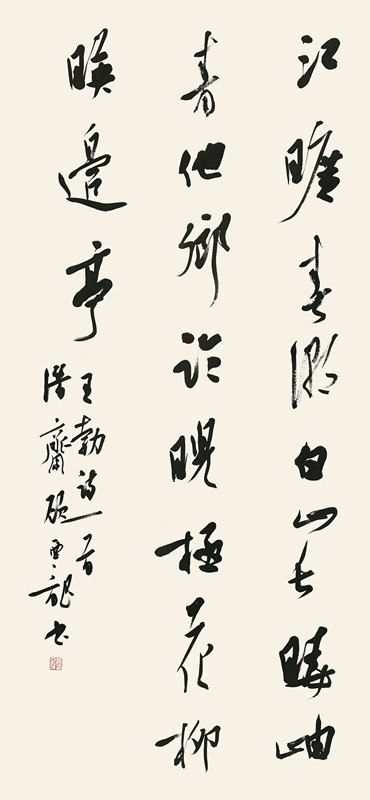 江曠春潮白山長曉岫
青他鄉臨睨極花柳
暎邊亭
王勃詩一首
齋 龍書